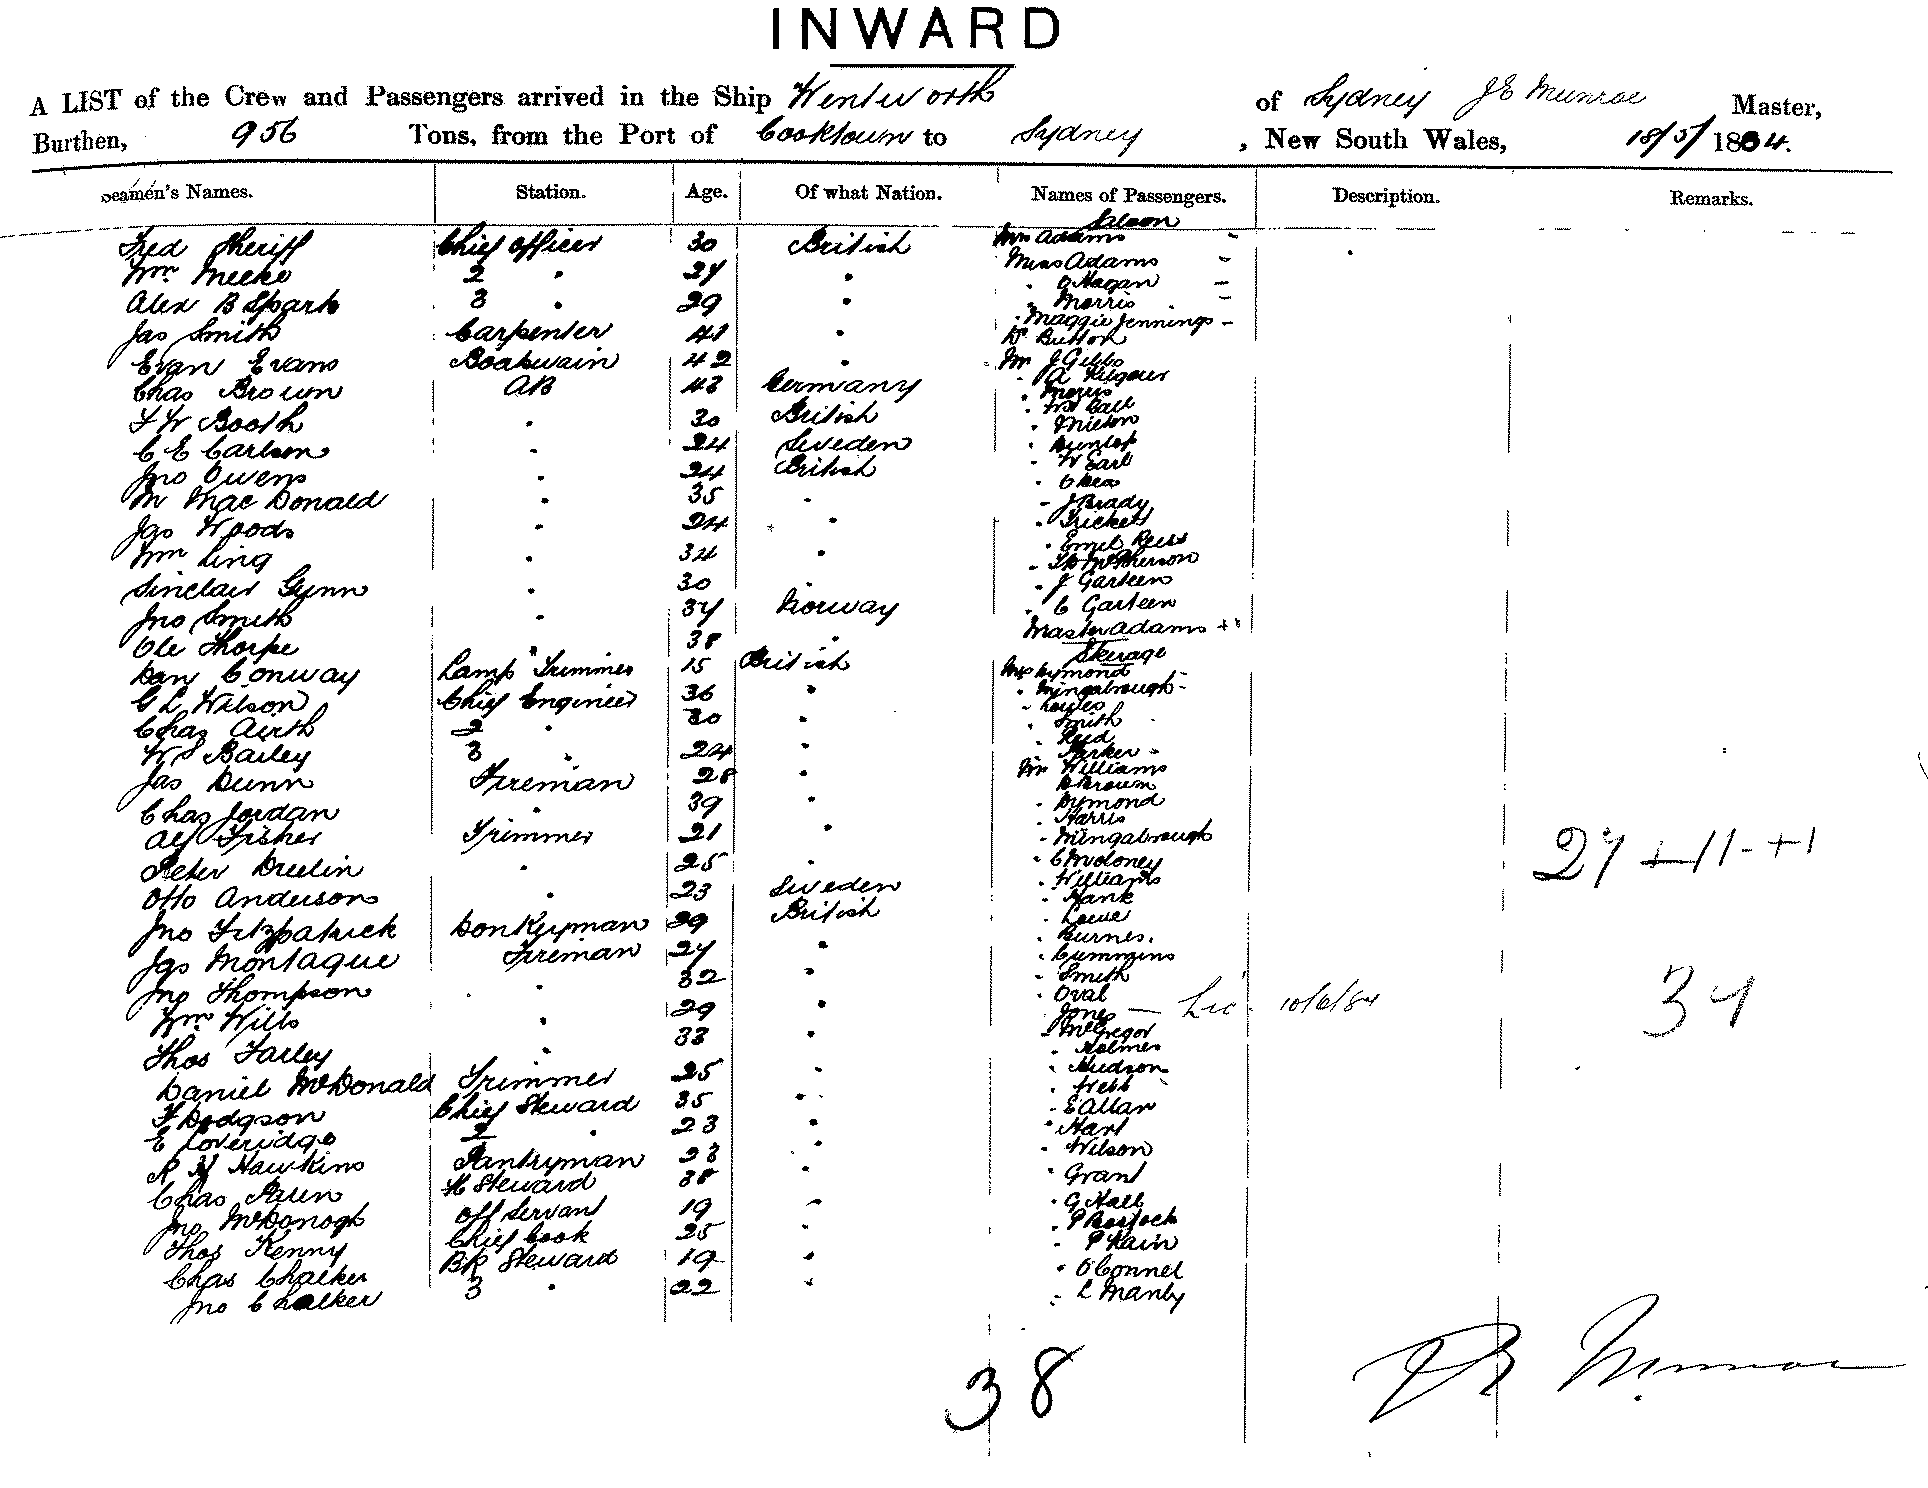 INWARD
A LIST of the Crew and Passengers arrived in the Ship Wentworth of Sydney J E Munroe Master,
Burthen, 956 Tons, from the Port of Cooktown to Sydney, New South Wales, 18/5/ 1884.
Seamen's Names. Station. Age. Of what Nation. Names of Passengers. Description. Remarks.
Fred Sheriff Chief Officer 30 British
Wm Meeke 2 " 27 "
Alex B Spark 3 " 29 "
Jas Smith Carpenter 41 "
Evan Evans Boatswain 42 "
Chas Brown AB 43 Germany
F W Booth " 30 British
C E Carlson " 24 Sweden
Jno Owens " 24 British
M Mac Donald " 35 "
Jas Woods " 24 "
Wm Ling " 34 "
Sinclair Gynn " 30 "
Jno Smith " 37 Norway
Ole Thorpe " 38 "
Dan Conway Lamp Trimmer 15 British
G L Wilson Chief Engineer 36 "
Chas Airth 2 " 30 "
W S Bailey 3 " 24 "
Jas Dunn Fireman 28 "
Chas Jordan " 39 "
Alf Fisher Trimmer 21 "
Peter " 25 "
Otto Anderson " 23 Sweden
Jno Fitzpatrick Donkeyman 29 British
Jas Montague Fireman 27 "
Jno Thompson " 32 "
Wm Wills " 29 "
Thos Farley " 33 "
Daniel McDonald Trimmer 25 "
F Dodgson Chief Steward 35 "
E Loveridge 2 " 23 "
R Hawkins Pantryman 23 "
Chas Steward 38 "
Jno McDonogh Off Servant 19 "
Thos Kenny Chief Cook 25 "
Chas Chalker Bk Steward 19 "
Jno Chalker 3 " 22 "
Saloon
Mrs Adams -
Miss Adams -
" O'Hagan -
" Morris -
" Maggie Jennings -
Dr Button
Mr J Gibbs
" A Kilgour
" Morris
" Wm Call
" Milton
" Dunlop
" W Earl
"
" J Brady
" Trickett
" Emil Rees
" McPherson
" J Garteen
" C Garteen
Master Adams +1
Steerage
Mrs Dymond -
" Mingabrough -
"
" Smith
" Reid
" Parker -
Mr Williams
" Brown
" Dymond
" Harris
" Mingabrough
" C Moloney
" Williams
" Hank
" Lowe
" Burnes.
" Cummins
" Smith
" Oval
" Jones — Lic 10/6/84
" McGregor
" Holmes
" Hudson
" Webb
" E Allan
" Hart
" Wilson
" Grant
" G Hall
" P Bostock
" P Kain
" O'Connel
" L Manby
27 + 11 - + 1
37
38
J E Munroe